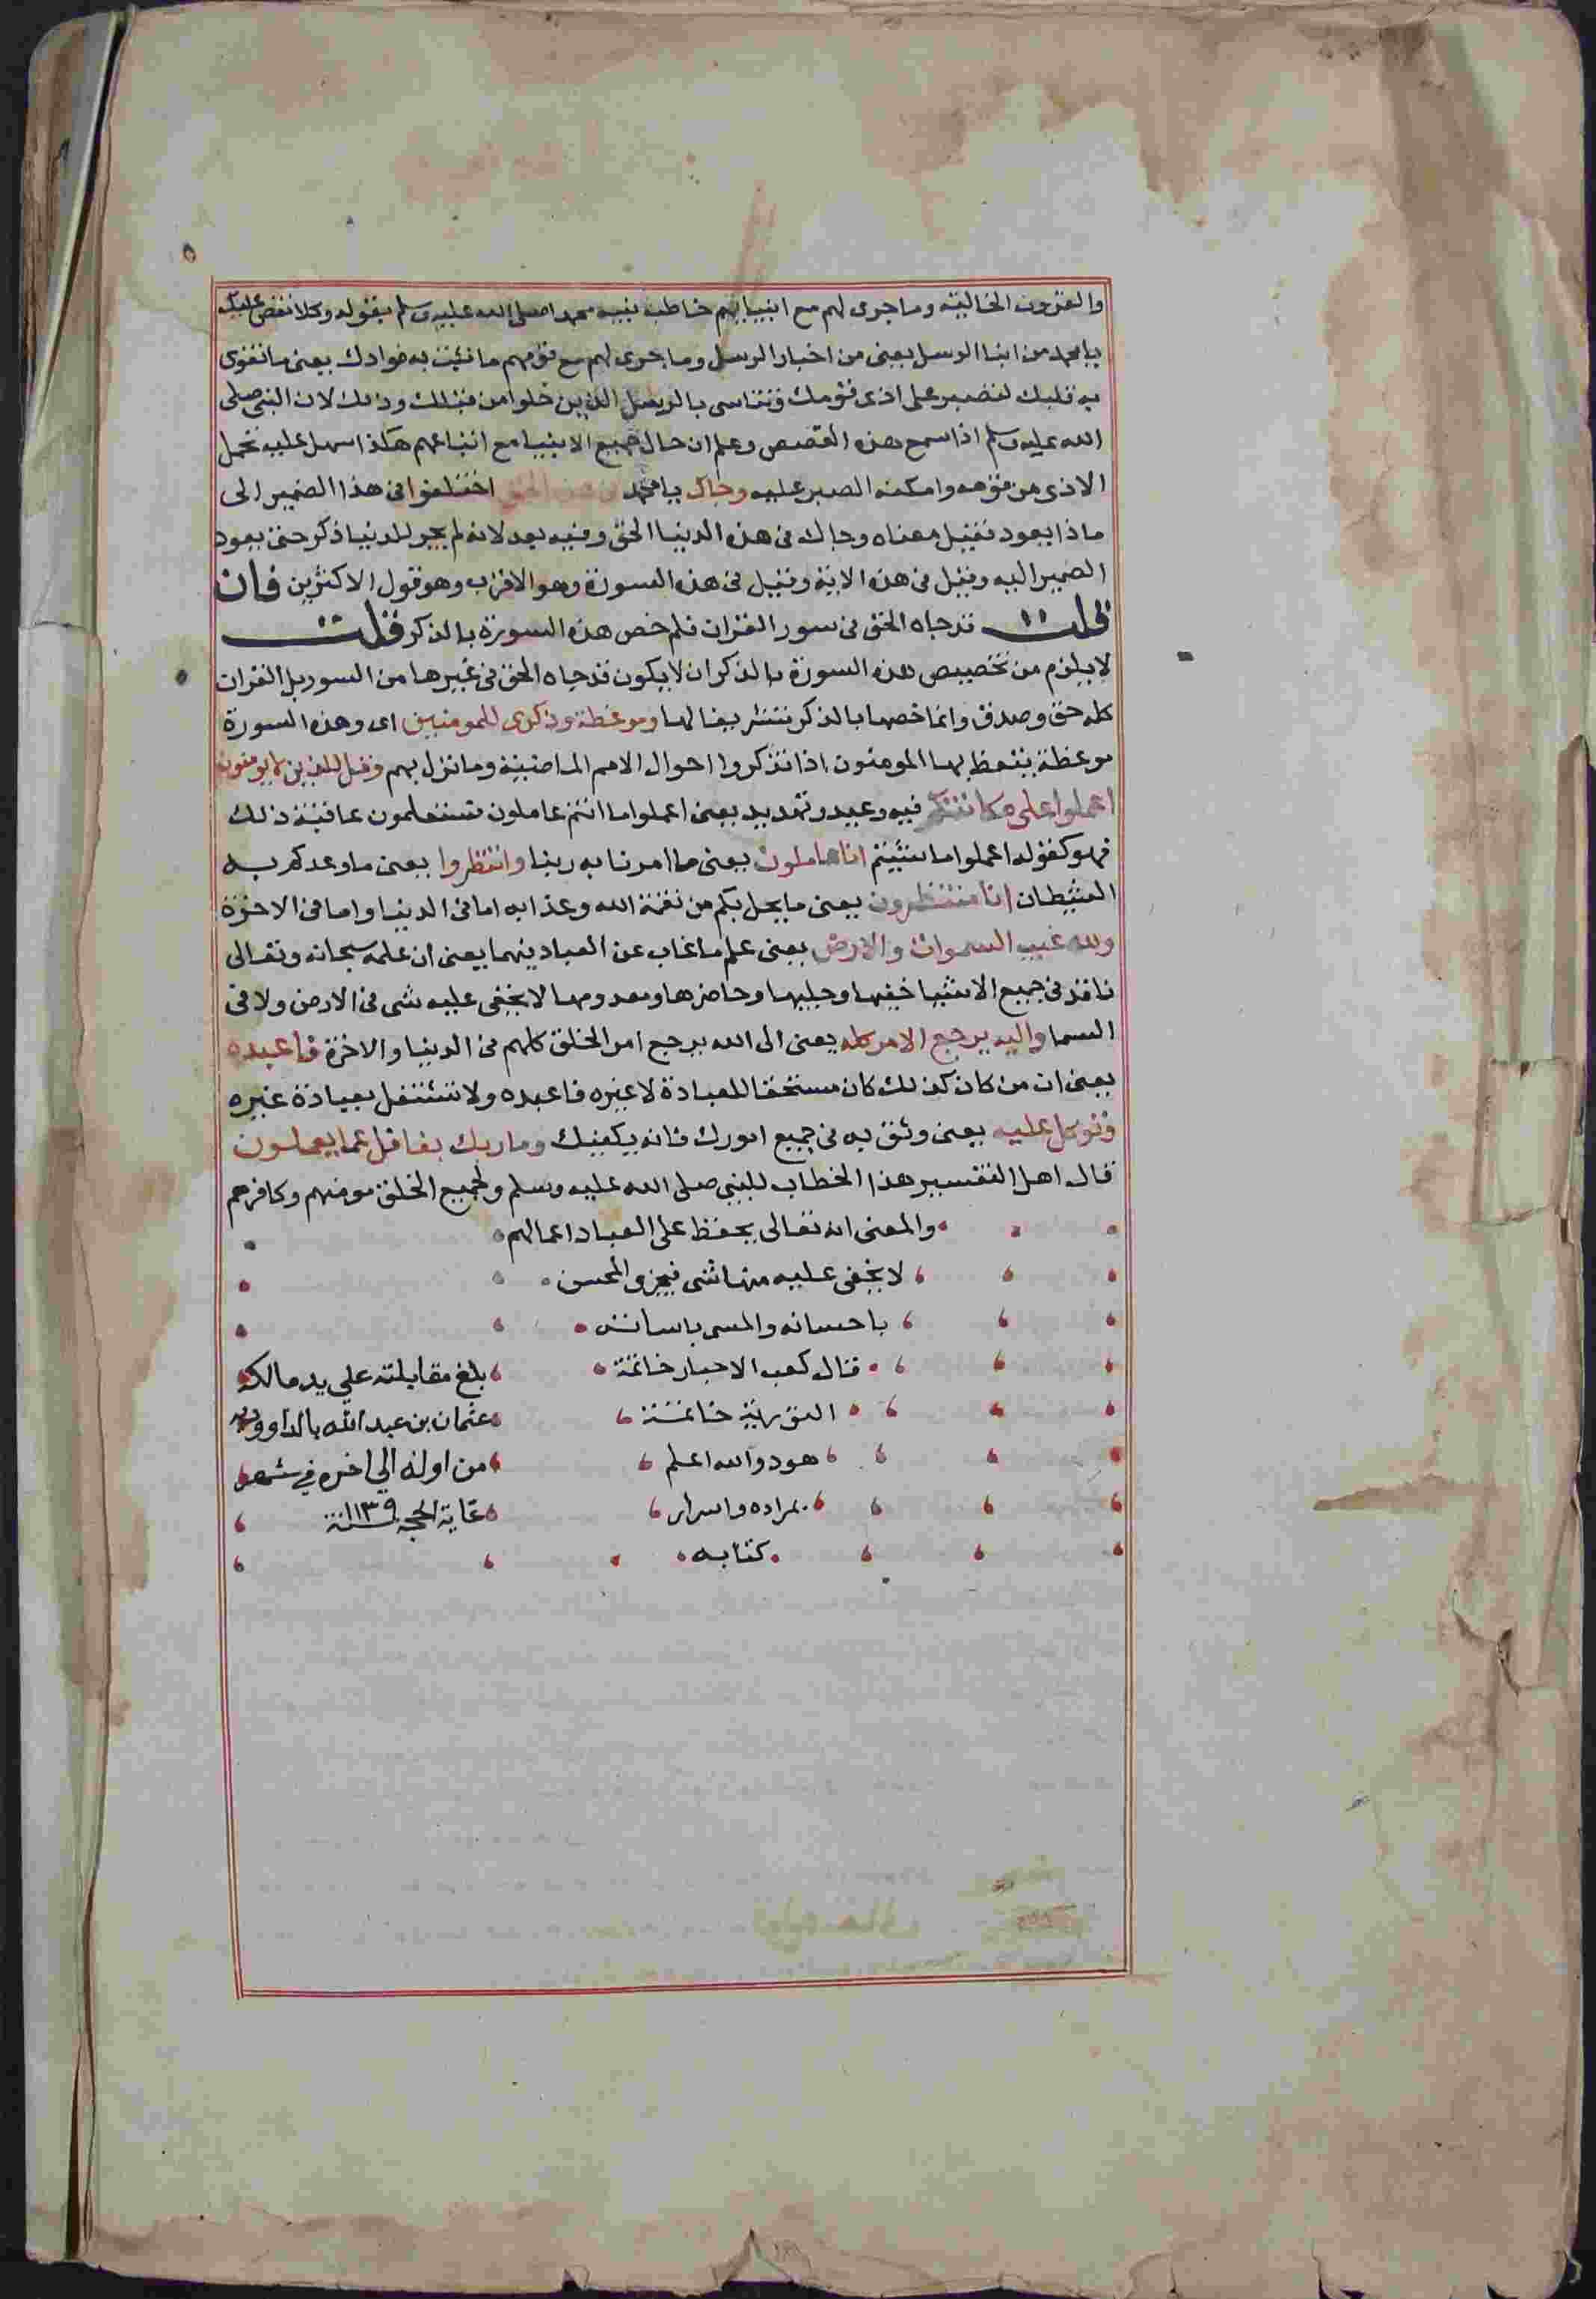 والقرون الخالية وما جرى لهم مع انبيايهم خاطب نبيه محمدا صلى الله عليه وسلم بقوله وكلا نقص عليك
يا محمد من انبا الرسل يعنى من اخبار الرسل وما جرى لهم مع قومهم ما نثبت به فوادك يعنى ما نقوى
به قلبك لتصبر على اذى قومك وتتاسى بالرسل الذين خلوا من قبلك وذلك لان النبى صلى
الله عليه وسلم اذا سمع هذه القصص وعلم ان حال جميع الانبيا مع اتباعهم هكذا سهل عليه تحمل
الاذى من قومه وامكنه الصبر عليه وجاك يا محمد فى هذه الحق اختلفوا فى هذا الضمير الى
ماذا يعود فقيل معناه وجاك فى هذه الدنيا الحق وفيه بعد لانه لم يجر للدنيا ذكر حتى يعود
الضمير اليه وقيل فى هذه الاية وقيل فى هذه السورة وهو الاقرب وهو قول الاكثرين فان
قلت قد جاه الحق فى سور القران فلم خص هذه السورة بالذكر قلت
لا يلزم من تخصيص هذه السورة بالذكر ان لا يكون قد جاه الحق فى غيرها من السور بل القران
كله حق وصدق وانما خصها بالذكر تشريفا لها وموعظة وذكرى للمومنين اى وهذه السورة
موعظة يتعظ بها المومنون اذا تذكروا احوال الامم الماضية وما نزل بهم وقل للذين لا يومنون
اعملوا على مكانتكم فيه وعيد وتهديد يعنى اعملوا ما انتم عاملون فستعلمون عاقبة ذلك
فهو كقوله اعملوا ما شئتم انا عاملون يعنى ما امرنا به ربنا وانتظروا يعنى ما وعدكم به
الشيطان انا منتظرون يعنى ما يحل بكم من نقمة الله وعذابه اما فى الدنيا واما فى الاخرة
ولله غيب السموات والارض يعنى علم ما غاب عن العباد فيهما يعنى ان علمه سبحانه وتعالى
نافذ فى جميع الاشيا خفيها وجليها وحاضرها ومعدومها لا يخفى عليه شى فى الارض ولا فى
السما واليه يرجع الامر كله يعنى الى الله يرجع امر الخلق كلهم فى الدنيا والاخرة فاعبده
يعنى ان من كان كذلك كان مستحقا للعبادة لا غيره فاعبده ولا تشتغل بعبادة غيره
وتوكل عليه يعنى وثق به فى جميع امورك فانه يكفيك وما ربك بغافل عما يعملون
قال اهل التفسير هذا الخطاب للنبى صلى الله عليه وسلم ولجميع الخلق مومنهم وكافرهم
والمعنى انه تعالى يحفظ على العباد اعمالهم
لا يخفى عليه منها شى فيجزى المحسن
باحسانه والمسى باسائته
قال كعب الاحبار خاتمة
التورية خاتمة
هود والله اعلم
بمراده واسرار
كتابه
بلغ مقابلته على يد مالكه
عثمان بن عبد الله بالداوودية
من اوله الي اخره في شهر
غاية الحجه سنة ١١٣٩